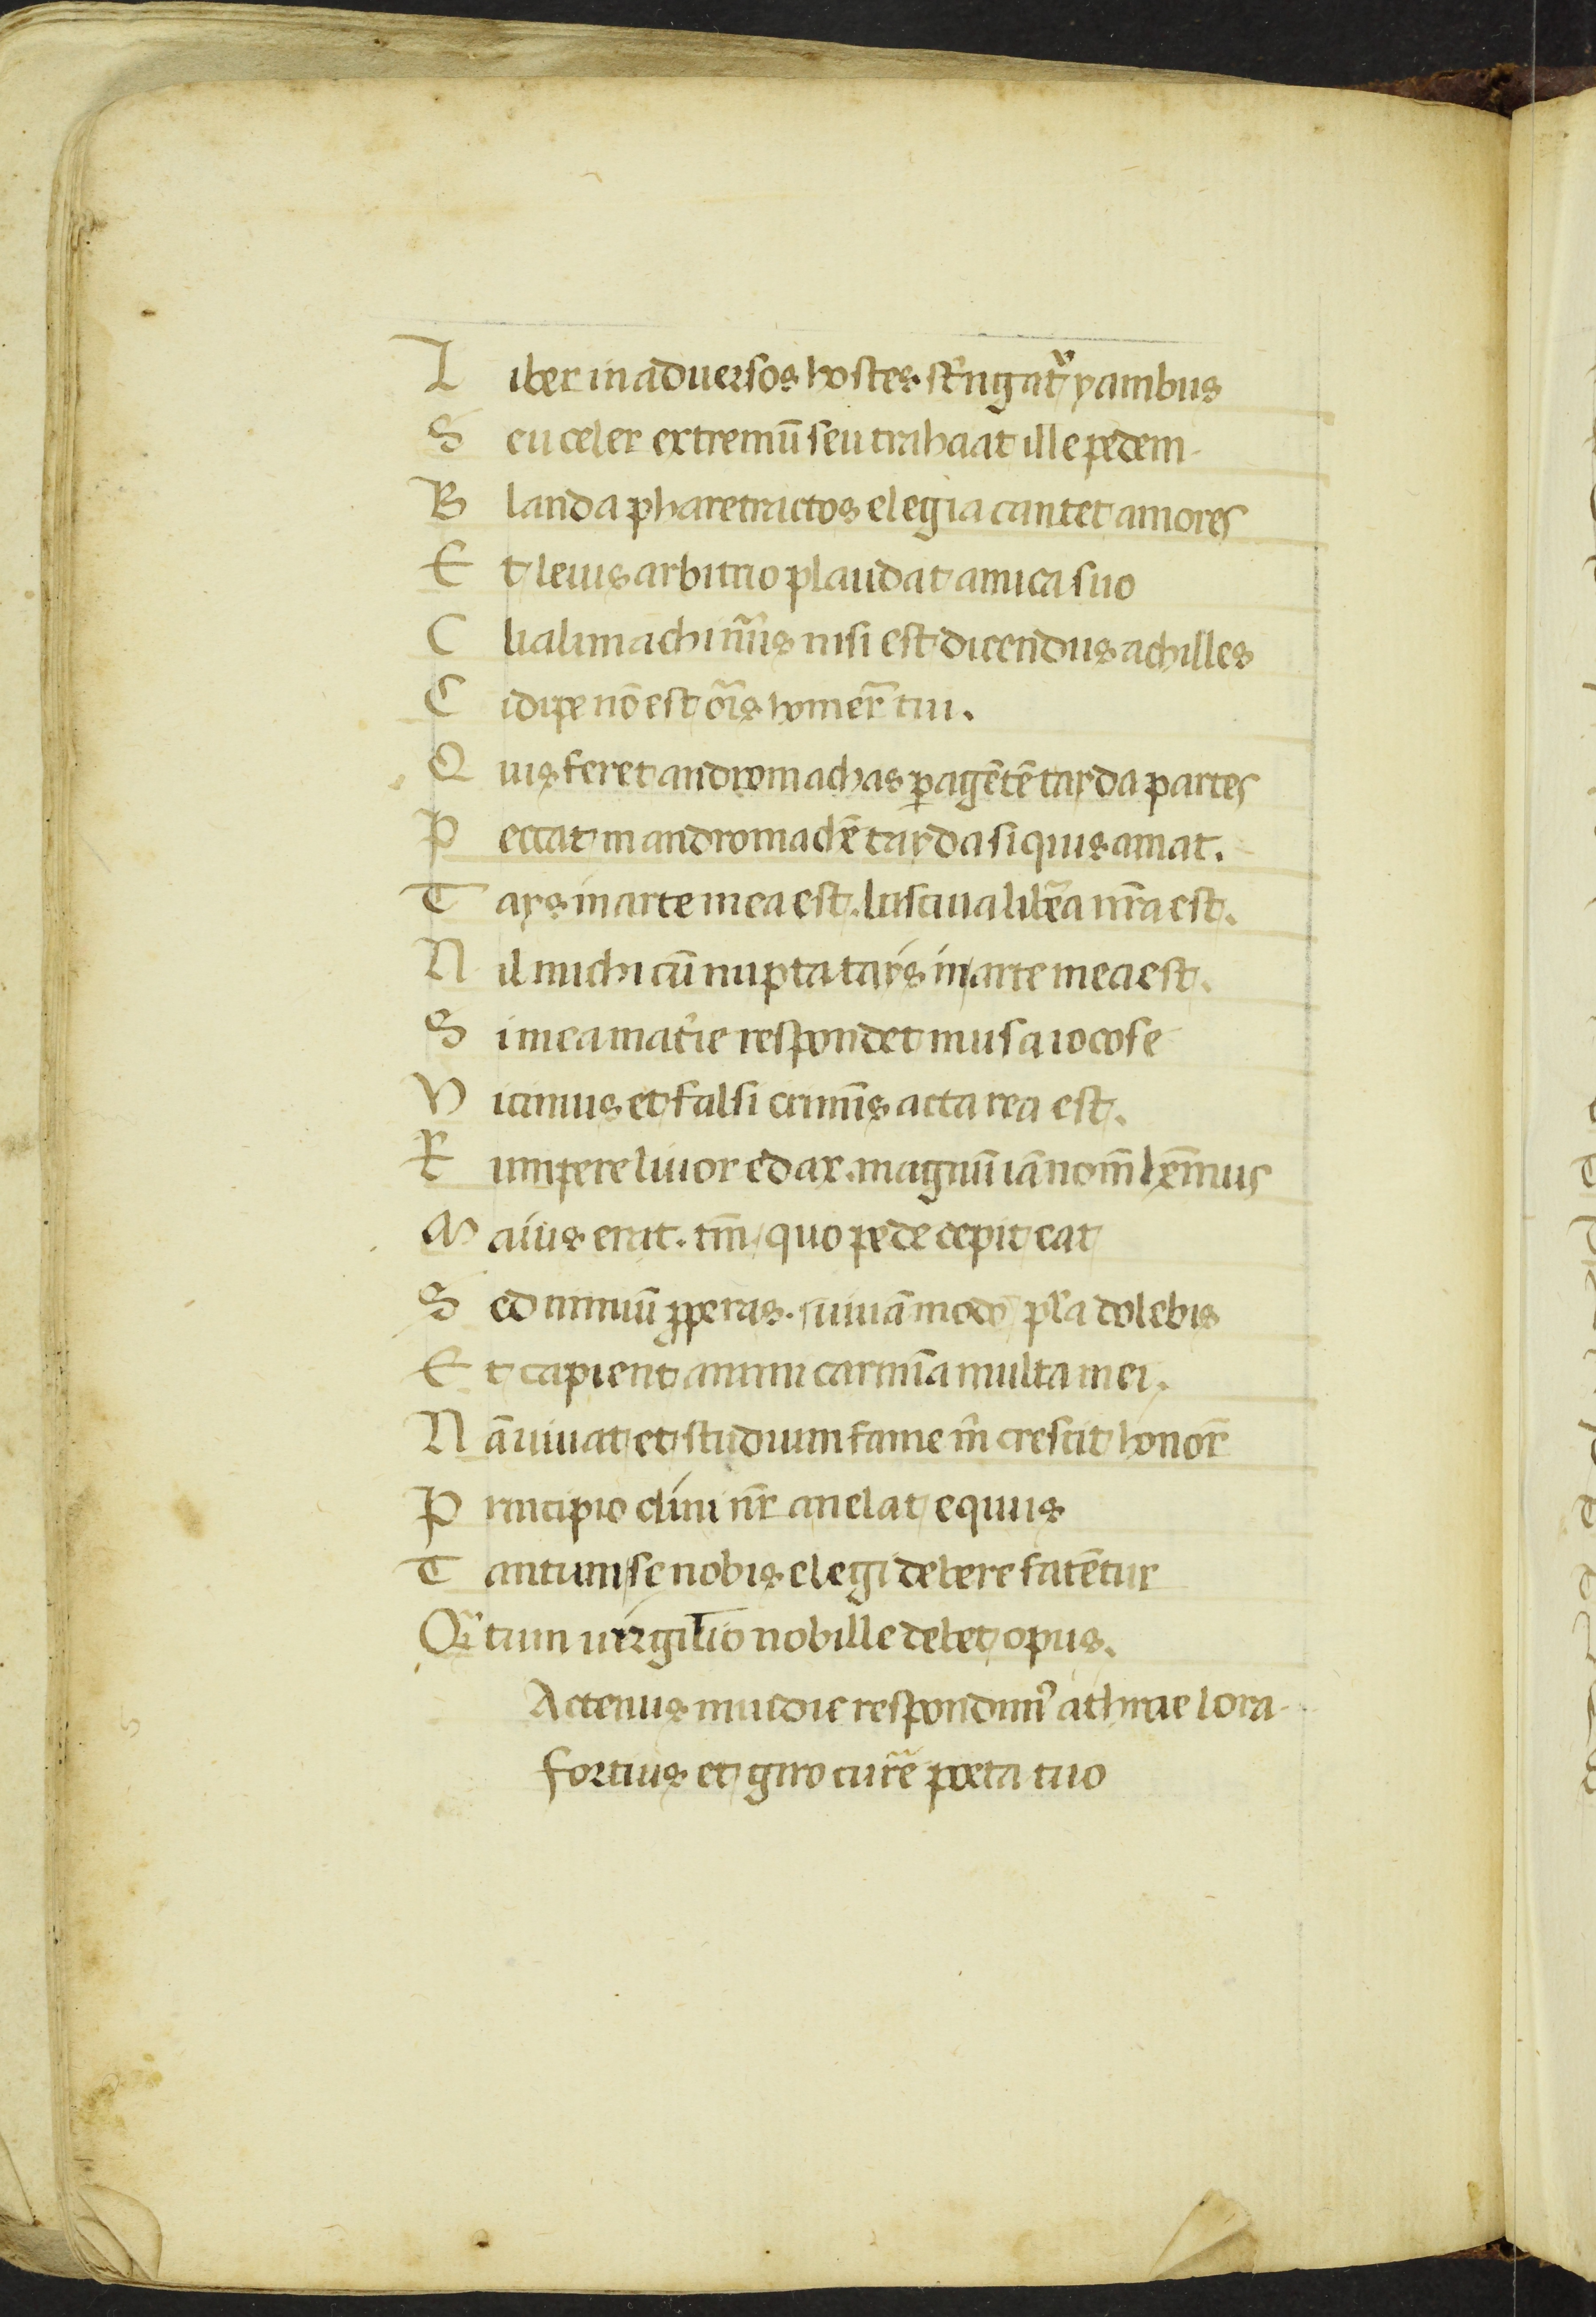 L iber in aduersos hostes stringatur yambus
S eu celer extremū seu trahaat ille pedem.
B landa pharetractos elegia cantet amores
E t leuis arbitrio plaudat amica suo
C lialimachi nūis nisi est dicendus achilles
C idipe nō est ōris homer̄ tui.
Q uis feret andromachas ꝑagētē tayda partes
P eccat in andromachē tayda si quis amat.
T ays in arte mea est. lasciua lib̄ta nr̄a est.
N il michi cū nupta tays in arte mea est.
S i mea mat̄ie respondet musa iocose
V icimus et falsi crimīs acta rea est.
R umpere liuor edax. magnū iā nom̄ hēmus
M aius erit. tm̄ quo pede cepit eat
S ed nimiū ꝓperas. uiuā modo pl̄a dolebis
E t capient animi carmīa multa mei.
N ā uiuat et studium fame m̄ crescit honor̄
P rincipio cliui nr̄ anelat equus
T antum se nobis elegi debere fatētur
Qn̄ tum uirgilio nobille debet opus.
Actenus inuidie respondimꝰ athrae lora.
fortius et giro cur̄e poeta tuo